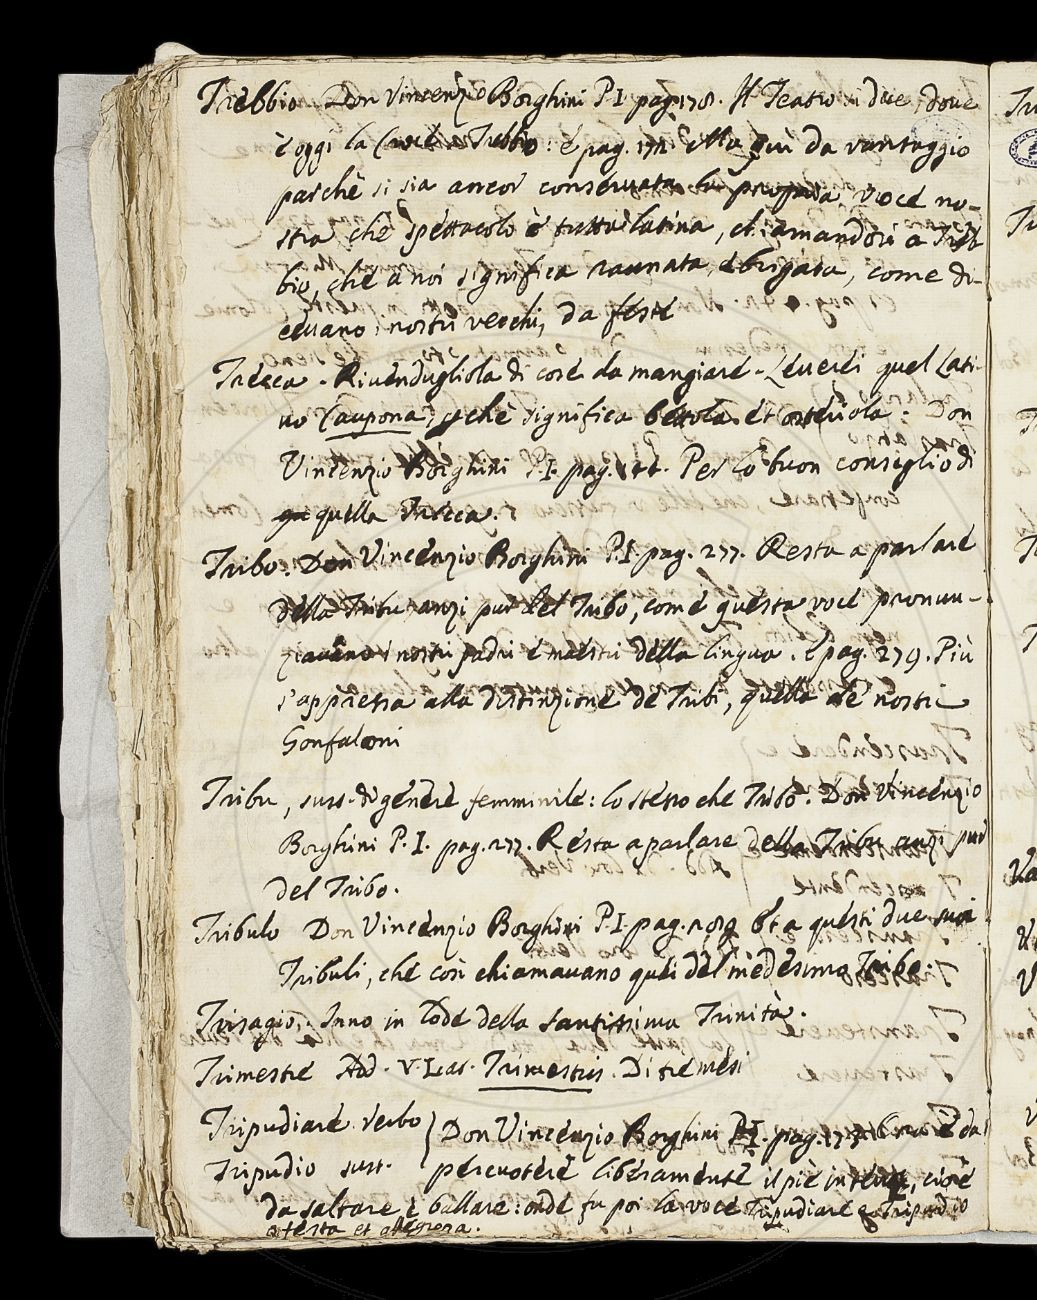 Trebbio Don Vincenzio Borghini P.I. pag. 178. Il Teatro si due, dove
è oggi la Croce Trebbio: e pag. 172. Ma qui da vantaggio
parche si sia ancor conservata la propria voce no-
stra che spettacolo è tutta latina, chiamandosi a Treb
bio, che a noi significa raunata, e brigata, come di-
cevano i nostri vecchi, da feste
Trecca. Rivendugliola di cose da mangiare. Levessi quel Lati-
no Caupona, che significa bettola et osteriola. Don
Vincenzio Borghini P.I. pag. Per lo buon consiglio di
quella Trecca.
Tribo. Don Vincenzio Borghini P.I. pag. 277. Resta a parlare
della Tribu, anzi pur del Tribo, come questa voce pronun-
ziavano i nostri padri e maestri della lingua. e pag. 279. Più
s'appressa alla distinzione de Tribi, quella de nostri
Gonfaloni
Tribu, sust. di genere femminile: lo stesso che Tribo. Don Vincenzio
Borghini P. I. pag. 277. Resta a parlare della Tribu anzi pur
del Tribo.
Tribulo Don Vincenzio Borghini P.I. pag. Et a questi due suoi
Tribuli, che così chiamavano quei del medesimo Tribo.
Trisagio. Inno in lode della Santissima Trinità.
Trimestre Add. V. Lat. Trimestris. Di tre mesi
Tripudiare verbo } Don Vincenzio Borghini P.I. pag. 177. è da
Tripudio sust. percuotere liberamente il piè in terra, cioè
da saltare e ballare: onde fu poi la voce Tripudiare e Tripudio
a festa et allegrezza.